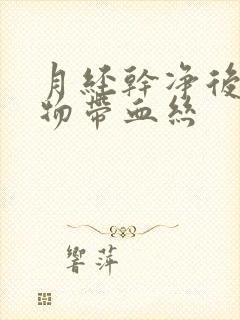 月經幹凈後
物帶血絲
響萍